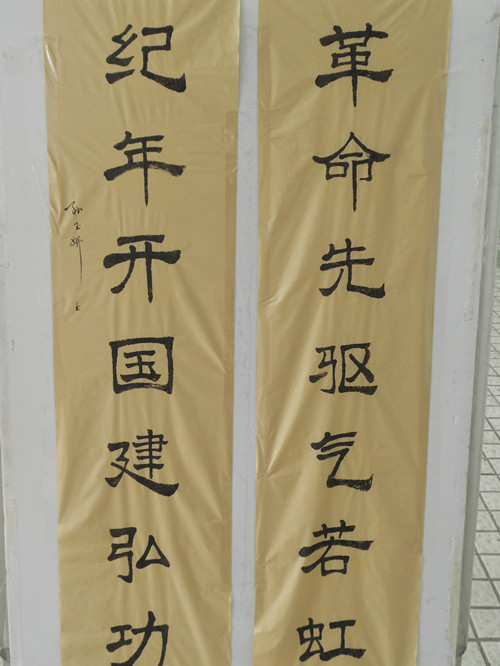 革命先驱气若虹
纪年开国建弘功